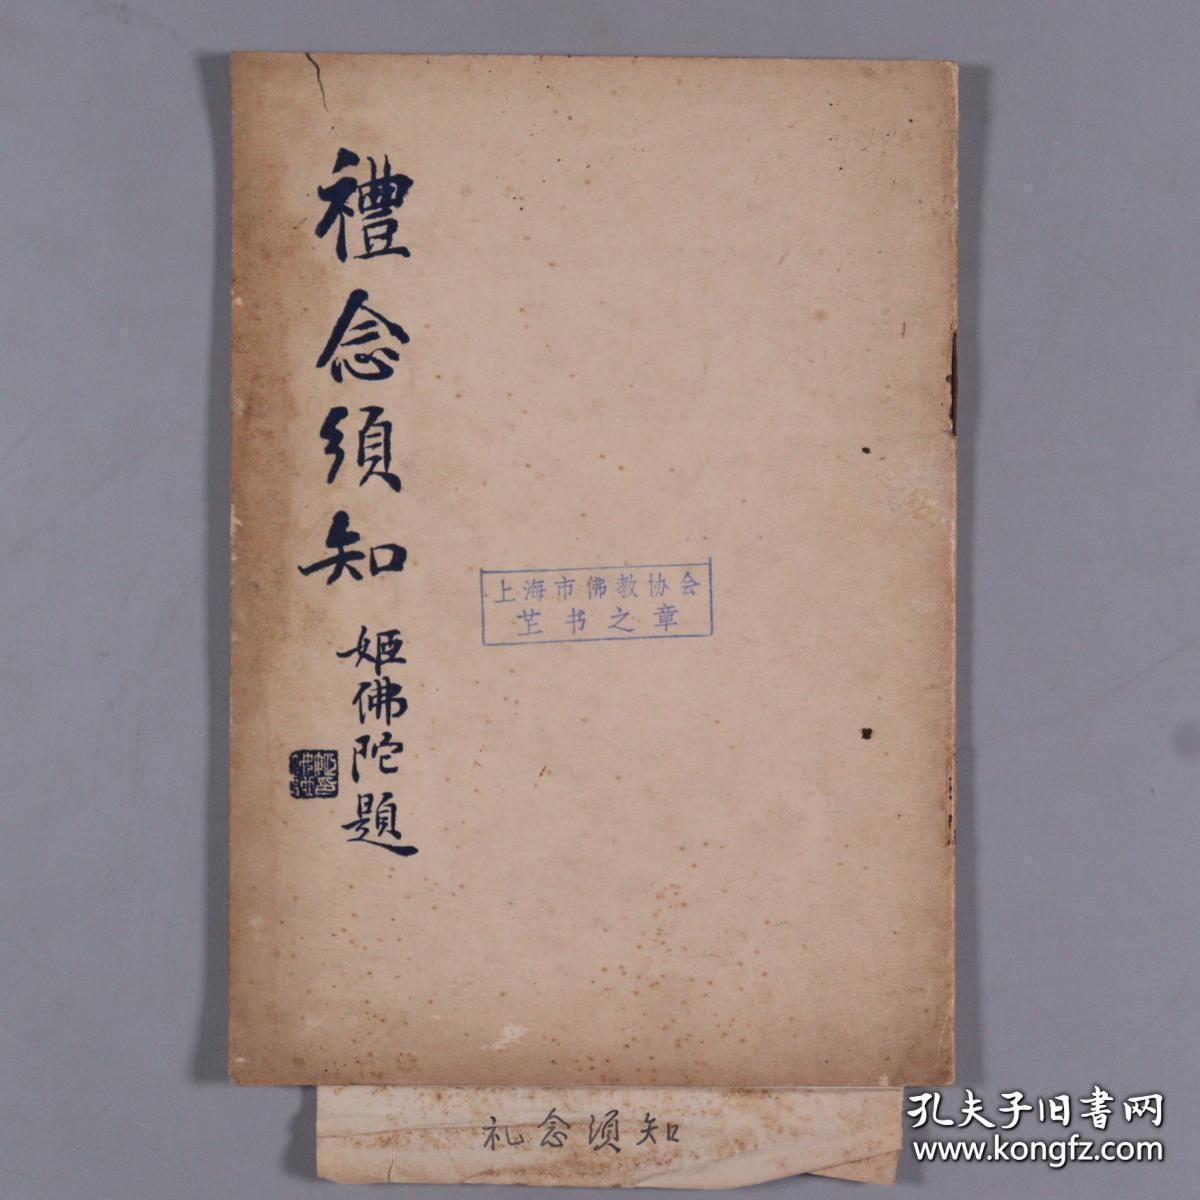 禮念須知
姬佛陀題
上海市佛教协会
书之章
礼念須知
孔夫子旧書网
www.kongfz.com